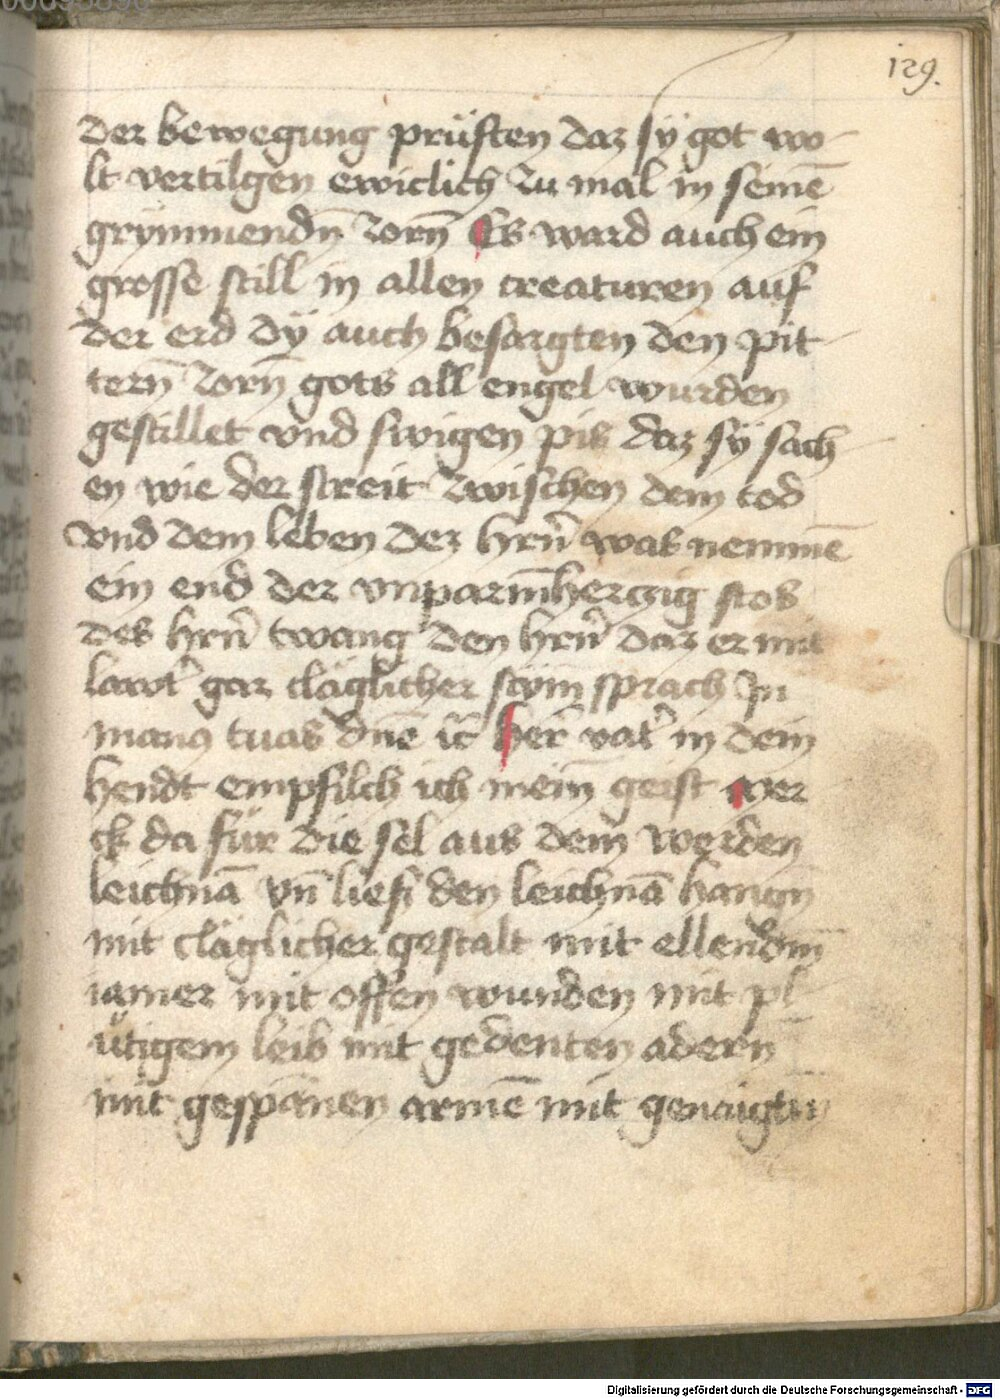 00095890
129.
der bewegung prüften daz sÿ got wo-
lt vertilgen ewiclich zu mal in seinē
grÿmmendn̄ zorn̄ Es ward auch ein
grosse still in allen creaturen auf
der erd dÿ auch besorgten den pit-
tern̄ zorn̄ gots all engel wurden
gestillet vnd swigen pis daz sÿ sach-
en wie der streit zwischen dem tod
vnd dem leben dez hrn̄ was nemmē
ein end der vnparm̄herczig stos
des hrn̄ twang den hrn̄ daz er mit
lawt' gar cläglicher stÿm̄ sprach In
manꝯ tuas dn̄e ic̄ her̄ vat' in dein
hendt empfilch ich mein̄ geist mer-
ck da für die sel aus dem werden
leichnā vn̄ lies den leichnā hangn̄
mit cläglicher gestalt mit ellendm̄
iamer mit offen wunden mit pl-
ütigem leib mit gedenten adern
mit gespānen armē mit genaigtm̄
Digitalisierung gefördert durch die Deutsche Forschungsgemeinschaft - DFG